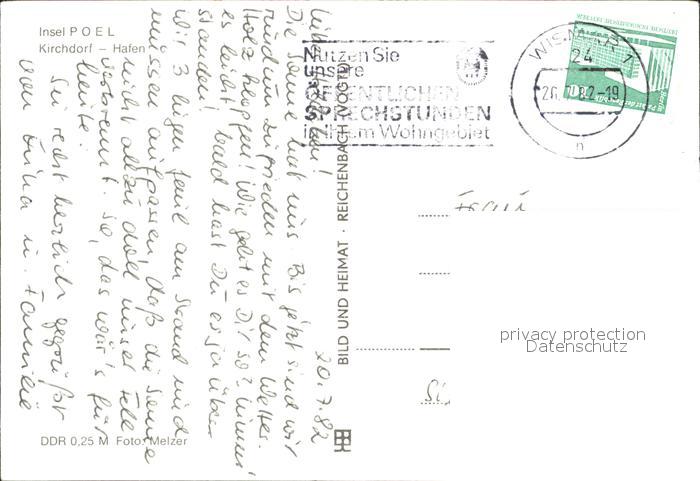 Insel POEL
Kirchdorf – Hafen
20.7.82
Die Sonne hat uns. Bis jetzt sind wir
rundum zufrieden mit dem Wetter.
Holz klopfen! Wie geht es Dir so? Nimm
es leicht, bald hast Du es ja über
standen!
Wir 3 liegen faul am Strand und
müssen aufpassen, daß die Sonne
nicht allzu doll unser Fell
verbrennt. So, das wär's für
heute!
Sei recht herzlich gegrüßt
von Erika u. Familie
DDR 0,25 M Foto: Melzer
BILD UND HEIMAT · REICHENBACH (VOGTL)
Nutzen Sie
unsere
ÖFFENTLICHEN
SPRECHSTUNDEN
in Ihrem Wohngebiet
WISMAR 1
24
82-19
n
DEUTSCHE DEMOKRATISCHE REPUBLIK
Frau
privacy protection
Datenschutz